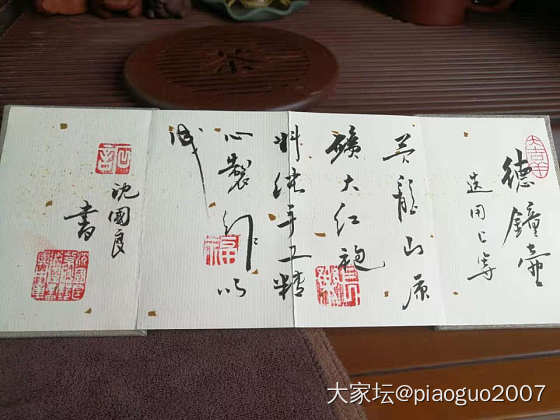 德鐘壶
選用上等
黄龍山原
礦大红袍
料純手工精
心製作
成
沈國良
書
福
大家坛@piaoguo2007